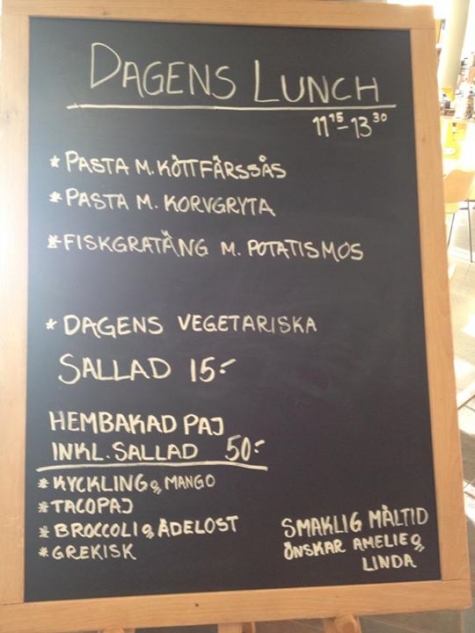 DAGENS LUNCH
11 15 - 13 30
* PASTA M. KÖTTFÄRSSÅS
* PASTA M. KORVGRYTA
* FISKGRATÄNG M. POTATISMOS
* DAGENS VEGETARISKA
SALLAD 15:-
HEMBAKAD PAJ
INKL. SALLAD 50:-
* KYCKLING & MANGO
* TACOPAJ
* BROCCOLI & ÄDELOST
* GREKISK
SMAKLIG MÅLTID
ÖNSKAR AMELIE &
LINDA